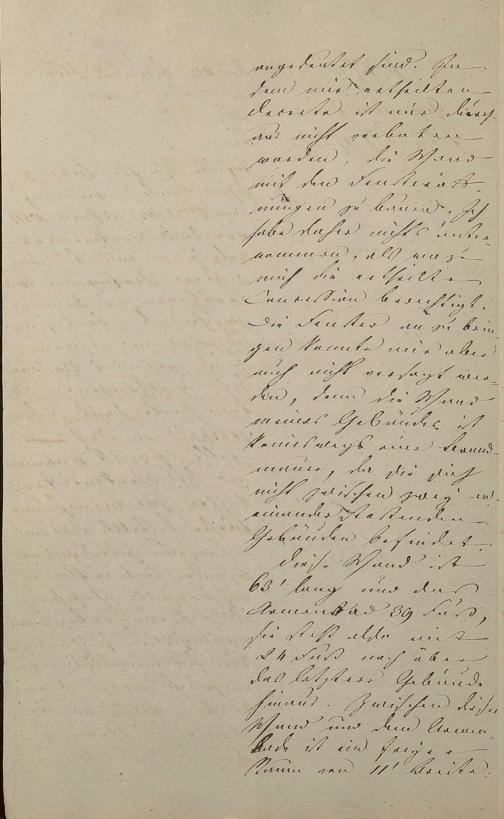 angedeutet sind. In
dem mir ertheilten
Decrete ist mir durch-
aus nicht verboten
worden, die Wand
mit den Fensteröff-
nungen zu bauen. Ich
habe daher nichts unter-
nommen, als wozu
mich die ertheilte
Concession berechtigt.
Die Fenster an zu brin-
gen konnte mir aber
auch nicht versagt wer-
den, denn die Wand
meines Gebäudes ist
keineswegs eine Brand-
mauer, da sie sich
nicht zwischen zwei an
einander stoßenden
Gebäuden befindet.
Diese Wand ist
63' lang und das
Armenbad 39 Fuß,
sie steht also mit
24 Fuß noch über
das letztere Gebäude
hinaus. Zwischen dieser
Wand und dem Armen-
bade ist ein freier
Raum von 11' Breite.